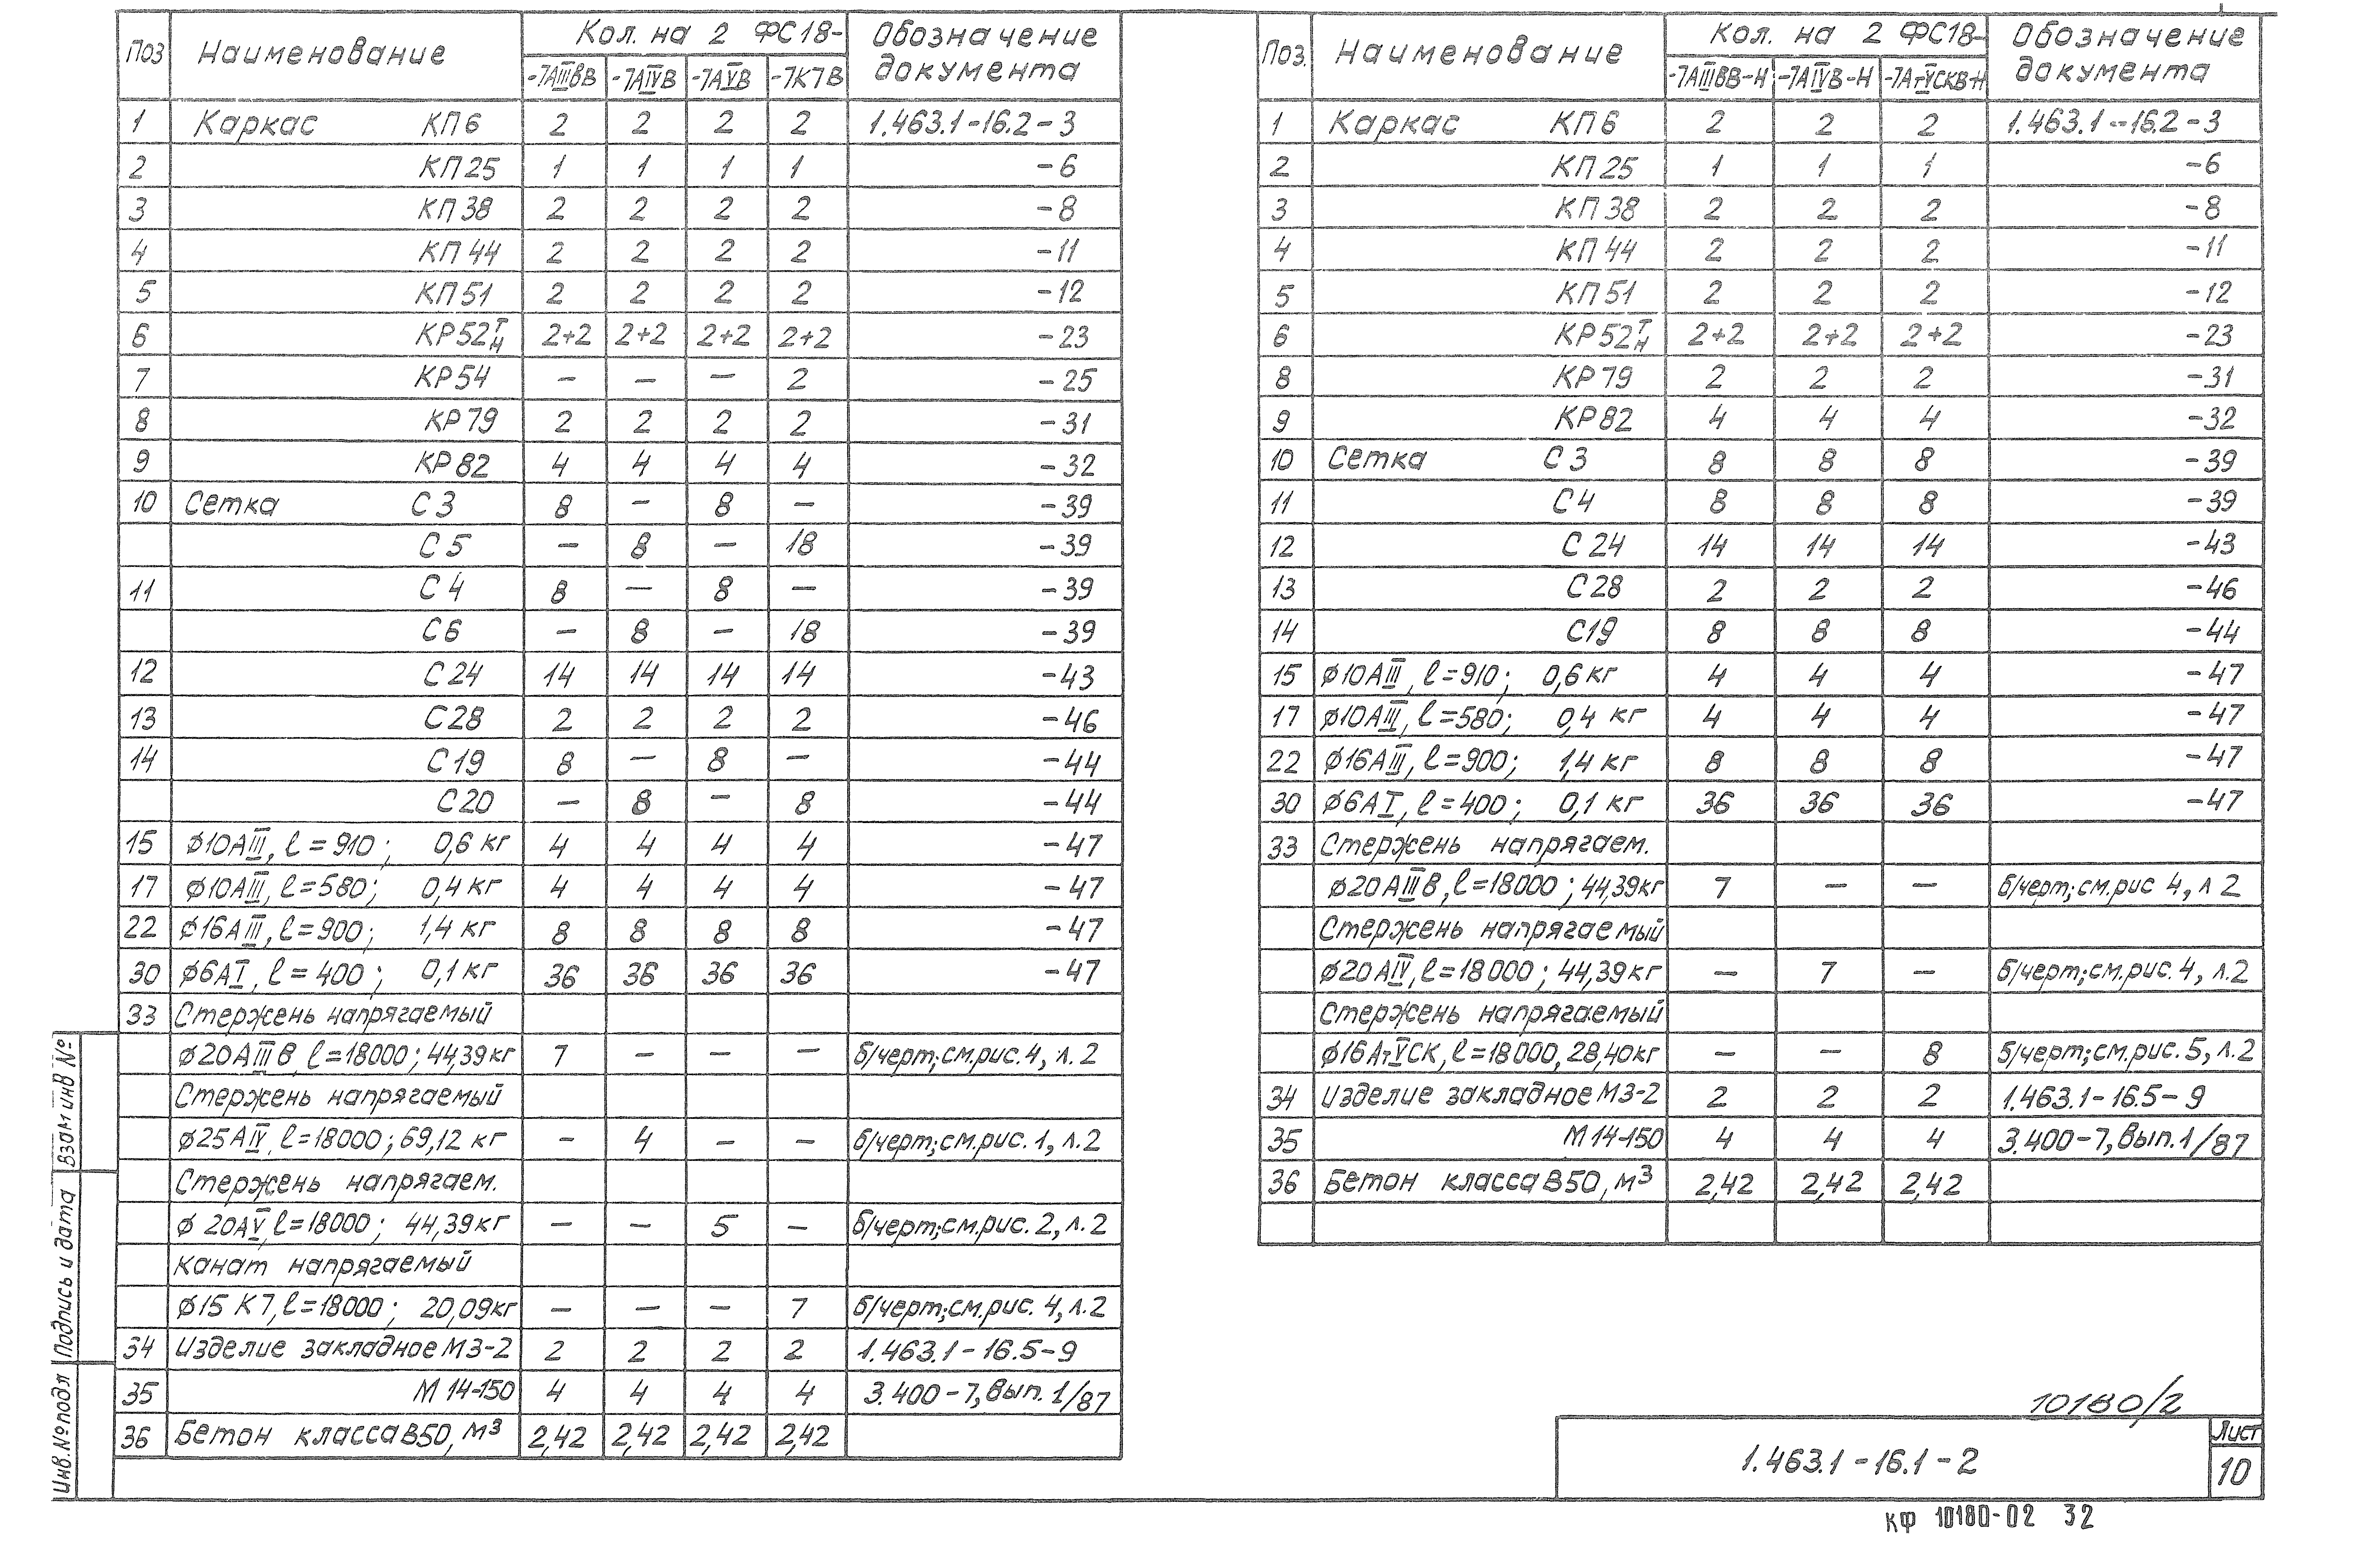 Поз Наименование Кол. на 2 ФС18- Обозначение документа
-7АIIIвВ -7АIVВ -7АVВ -7К7В
1 Каркас КП6 2 2 2 2 1.463.1-16.2-3
2 КП25 1 1 1 1 -6
3 КП38 2 2 2 2 -8
4 КП44 2 2 2 2 -11
5 КП51 2 2 2 2 -12
6 КР52Т/Н 2+2 2+2 2+2 2+2 -23
7 КР54 — — — 2 -25
8 КР79 2 2 2 2 -31
9 КР82 4 4 4 4 -32
10 Сетка С3 8 — 8 — -39
С5 — 8 — 18 -39
11 С4 8 — 8 — -39
С6 — 8 — 18 -39
12 С24 14 14 14 14 -43
13 С28 2 2 2 2 -46
14 С19 8 — 8 — -44
С20 — 8 — 8 -44
15 ϕ10АIII, ℓ=910; 0,6 кг 4 4 4 4 -47
17 ϕ10АIII, ℓ=580; 0,4 кг 4 4 4 4 -47
22 ϕ16АIII, ℓ=900; 1,4 кг 8 8 8 8 -47
30 ϕ6АI, ℓ=400; 0,1 кг 36 36 36 36 -47
33 Стержень напрягаемый
ϕ20АIIIв, ℓ=18000; 44,39кг 7 — — — б/черт; см.рис.4, л.2
Стержень напрягаемый
ϕ25АIV, ℓ=18000; 69,12 кг — 4 — — б/черт; см.рис.1, л.2
Стержень напрягаем.
ϕ20АV, ℓ=18000; 44,39кг — — 5 — б/черт; см.рис.2, л.2
Канат напрягаемый
ϕ15 К7, ℓ=18000; 20,09кг — — — 7 б/черт; см.рис.4, л.2
34 Изделие закладное МЗ-2 2 2 2 2 1.463.1-16.5-9
35 М14-150 4 4 4 4 3.400-7, вып.1/87
36 Бетон класса В50, м³ 2,42 2,42 2,42 2,42
Поз. Наименование Кол. на 2 ФС18- Обозначение документа
-7АIIIвВ-Н -7АIVВ-Н -7АтVСКВ-Н
1 Каркас КП6 2 2 2 1.463.1-16.2-3
2 КП25 1 1 1 -6
3 КП38 2 2 2 -8
4 КП44 2 2 2 -11
5 КП51 2 2 2 -12
6 КР52Т/Н 2+2 2+2 2+2 -23
8 КР79 2 2 2 -31
9 КР82 4 4 4 -32
10 Сетка С3 8 8 8 -39
11 С4 8 8 8 -39
12 С24 14 14 14 -43
13 С28 2 2 2 -46
14 С19 8 8 8 -44
15 ϕ10АIII, ℓ=910; 0,6кг 4 4 4 -47
17 ϕ10АIII, ℓ=580; 0,4 кг 4 4 4 -47
22 ϕ16АIII, ℓ=900; 1,4 кг 8 8 8 -47
30 ϕ6АI, ℓ=400; 0,1 кг 36 36 36 -47
33 Стержень напрягаем.
ϕ20АIIIв, ℓ=18000; 44,39кг 7 — — б/черт; см.рис 4, л 2
Стержень напрягаемый
ϕ20АIV, ℓ=18000; 44,39кг — 7 — б/черт; см.рис.4, л.2
Стержень напрягаемый
ϕ16АтVСК, ℓ=18000, 28,40кг — — 8 б/черт; см.рис.5, л.2
34 Изделие закладное МЗ-2 2 2 2 1.463.1-16.5-9
35 М14-150 4 4 4 3.400-7, вып.1/87
36 Бетон класса В50, м³ 2,42 2,42 2,42
Взам инв №
Подпись и дата
Инв.№ подл
10180/2
1.463.1-16.1-2
Лист
10
КФ 10180-02 32